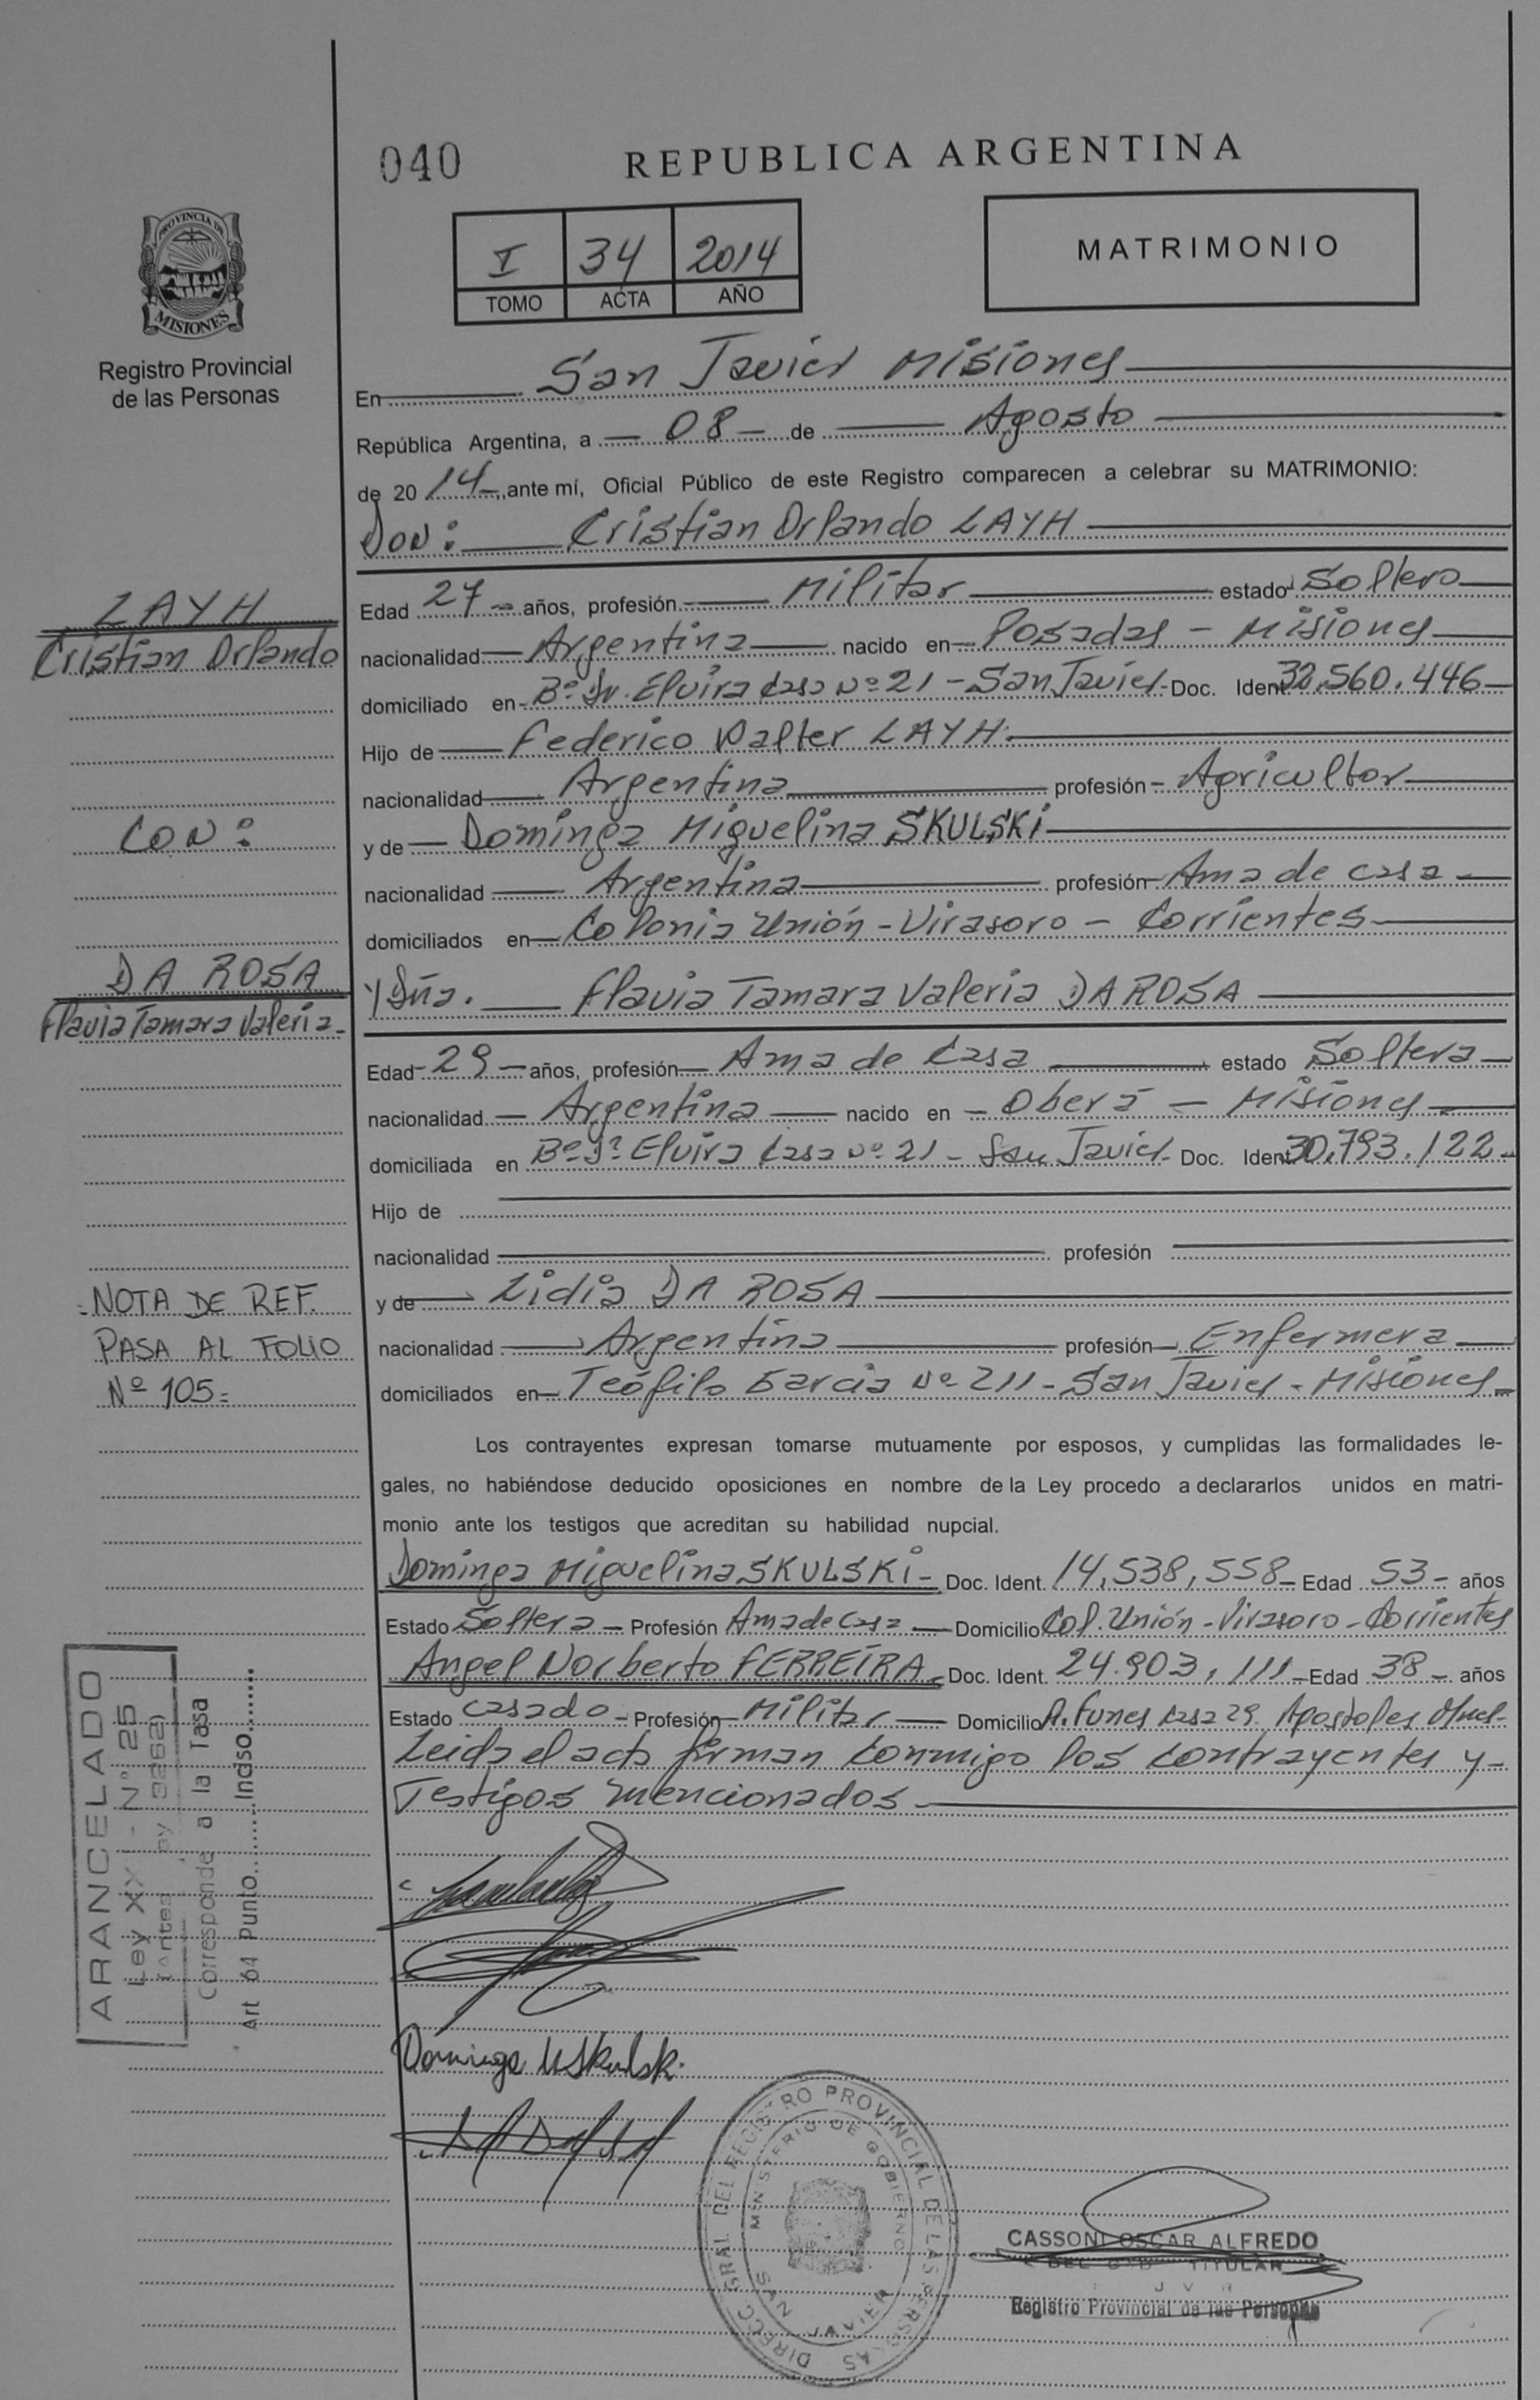 040
REPUBLICA ARGENTINA
I 34 2014
TOMO ACTA AÑO
MATRIMONIO
PROVINCIA DE
MISIONES
Registro Provincial
de las Personas
En San Javier Misiones
República Argentina, a 08 de Agosto
de 2014, ante mí, Oficial Público de este Registro comparecen a celebrar su MATRIMONIO:
DON: Cristian Orlando LAYH
LAYH
Cristian Orlando
Edad 27 años, profesión Militar estado Soltero
nacionalidad Argentina nacido en Posadas - Misiones
domiciliado en Bº Sr. Elvira Casa Nº 21 - San Javier - Doc. Ident. 32.560.446
Hijo de Federico Walter LAYH
nacionalidad Argentina profesión Agricultor
CON:
y de Dominga Miguelina SKULSKI
nacionalidad Argentina profesión Ama de casa
domiciliados en Colonia Unión - Virasoro - Corrientes
DA ROSA
Flavia Tamara Valeria
Y Dña. Flavia Tamara Valeria DA ROSA
Edad 29 años, profesión Ama de Casa estado Soltera
nacionalidad Argentina nacido en Oberá - Misiones
domiciliada en Bº Sª Elvira Casa Nº 21 - San Javier - Doc. Ident. 30.793.122
Hijo de
nacionalidad profesión
NOTA DE REF.
PASA AL FOLIO
Nº 105=
y de Lidia DA ROSA
nacionalidad Argentina profesión Enfermera
domiciliados en Teófilo Garcia Nº 211 - San Javier - Misiones
Los contrayentes expresan tomarse mutuamente por esposos, y cumplidas las formalidades le-
gales, no habiéndose deducido oposiciones en nombre de la Ley procedo a declararlos unidos en matri-
monio ante los testigos que acreditan su habilidad nupcial.
Dominga Miguelina SKULSKI - Doc. Ident. 14.538.558 - Edad 53 - años
Estado Soltera - Profesión Ama de casa - Domicilio Col. Unión - Virasoro - Corrientes
Angel Norberto FERREIRA - Doc. Ident. 24.903.111 - Edad 38 - años
Estado Casado - Profesión Militar - Domicilio A. Funes casa 29 Apostoles
Leida el acta firman conmigo los contrayentes y
Testigos mencionados
ARANCELADO
Ley XXI - Nº 25
(Antes Ley 3262)
Corresponde a la Tasa
Art 64 Punto........Inciso.......
Dominga M Skulski
DIRECC. GRAL. DEL REGISTRO PROVINCIAL DE LAS PERSONAS
MINISTERIO DE GOBIERNO
SAN JAVIER
CASSONI OSCAR ALFREDO
TITULAR
Registro Provincial de las Personas